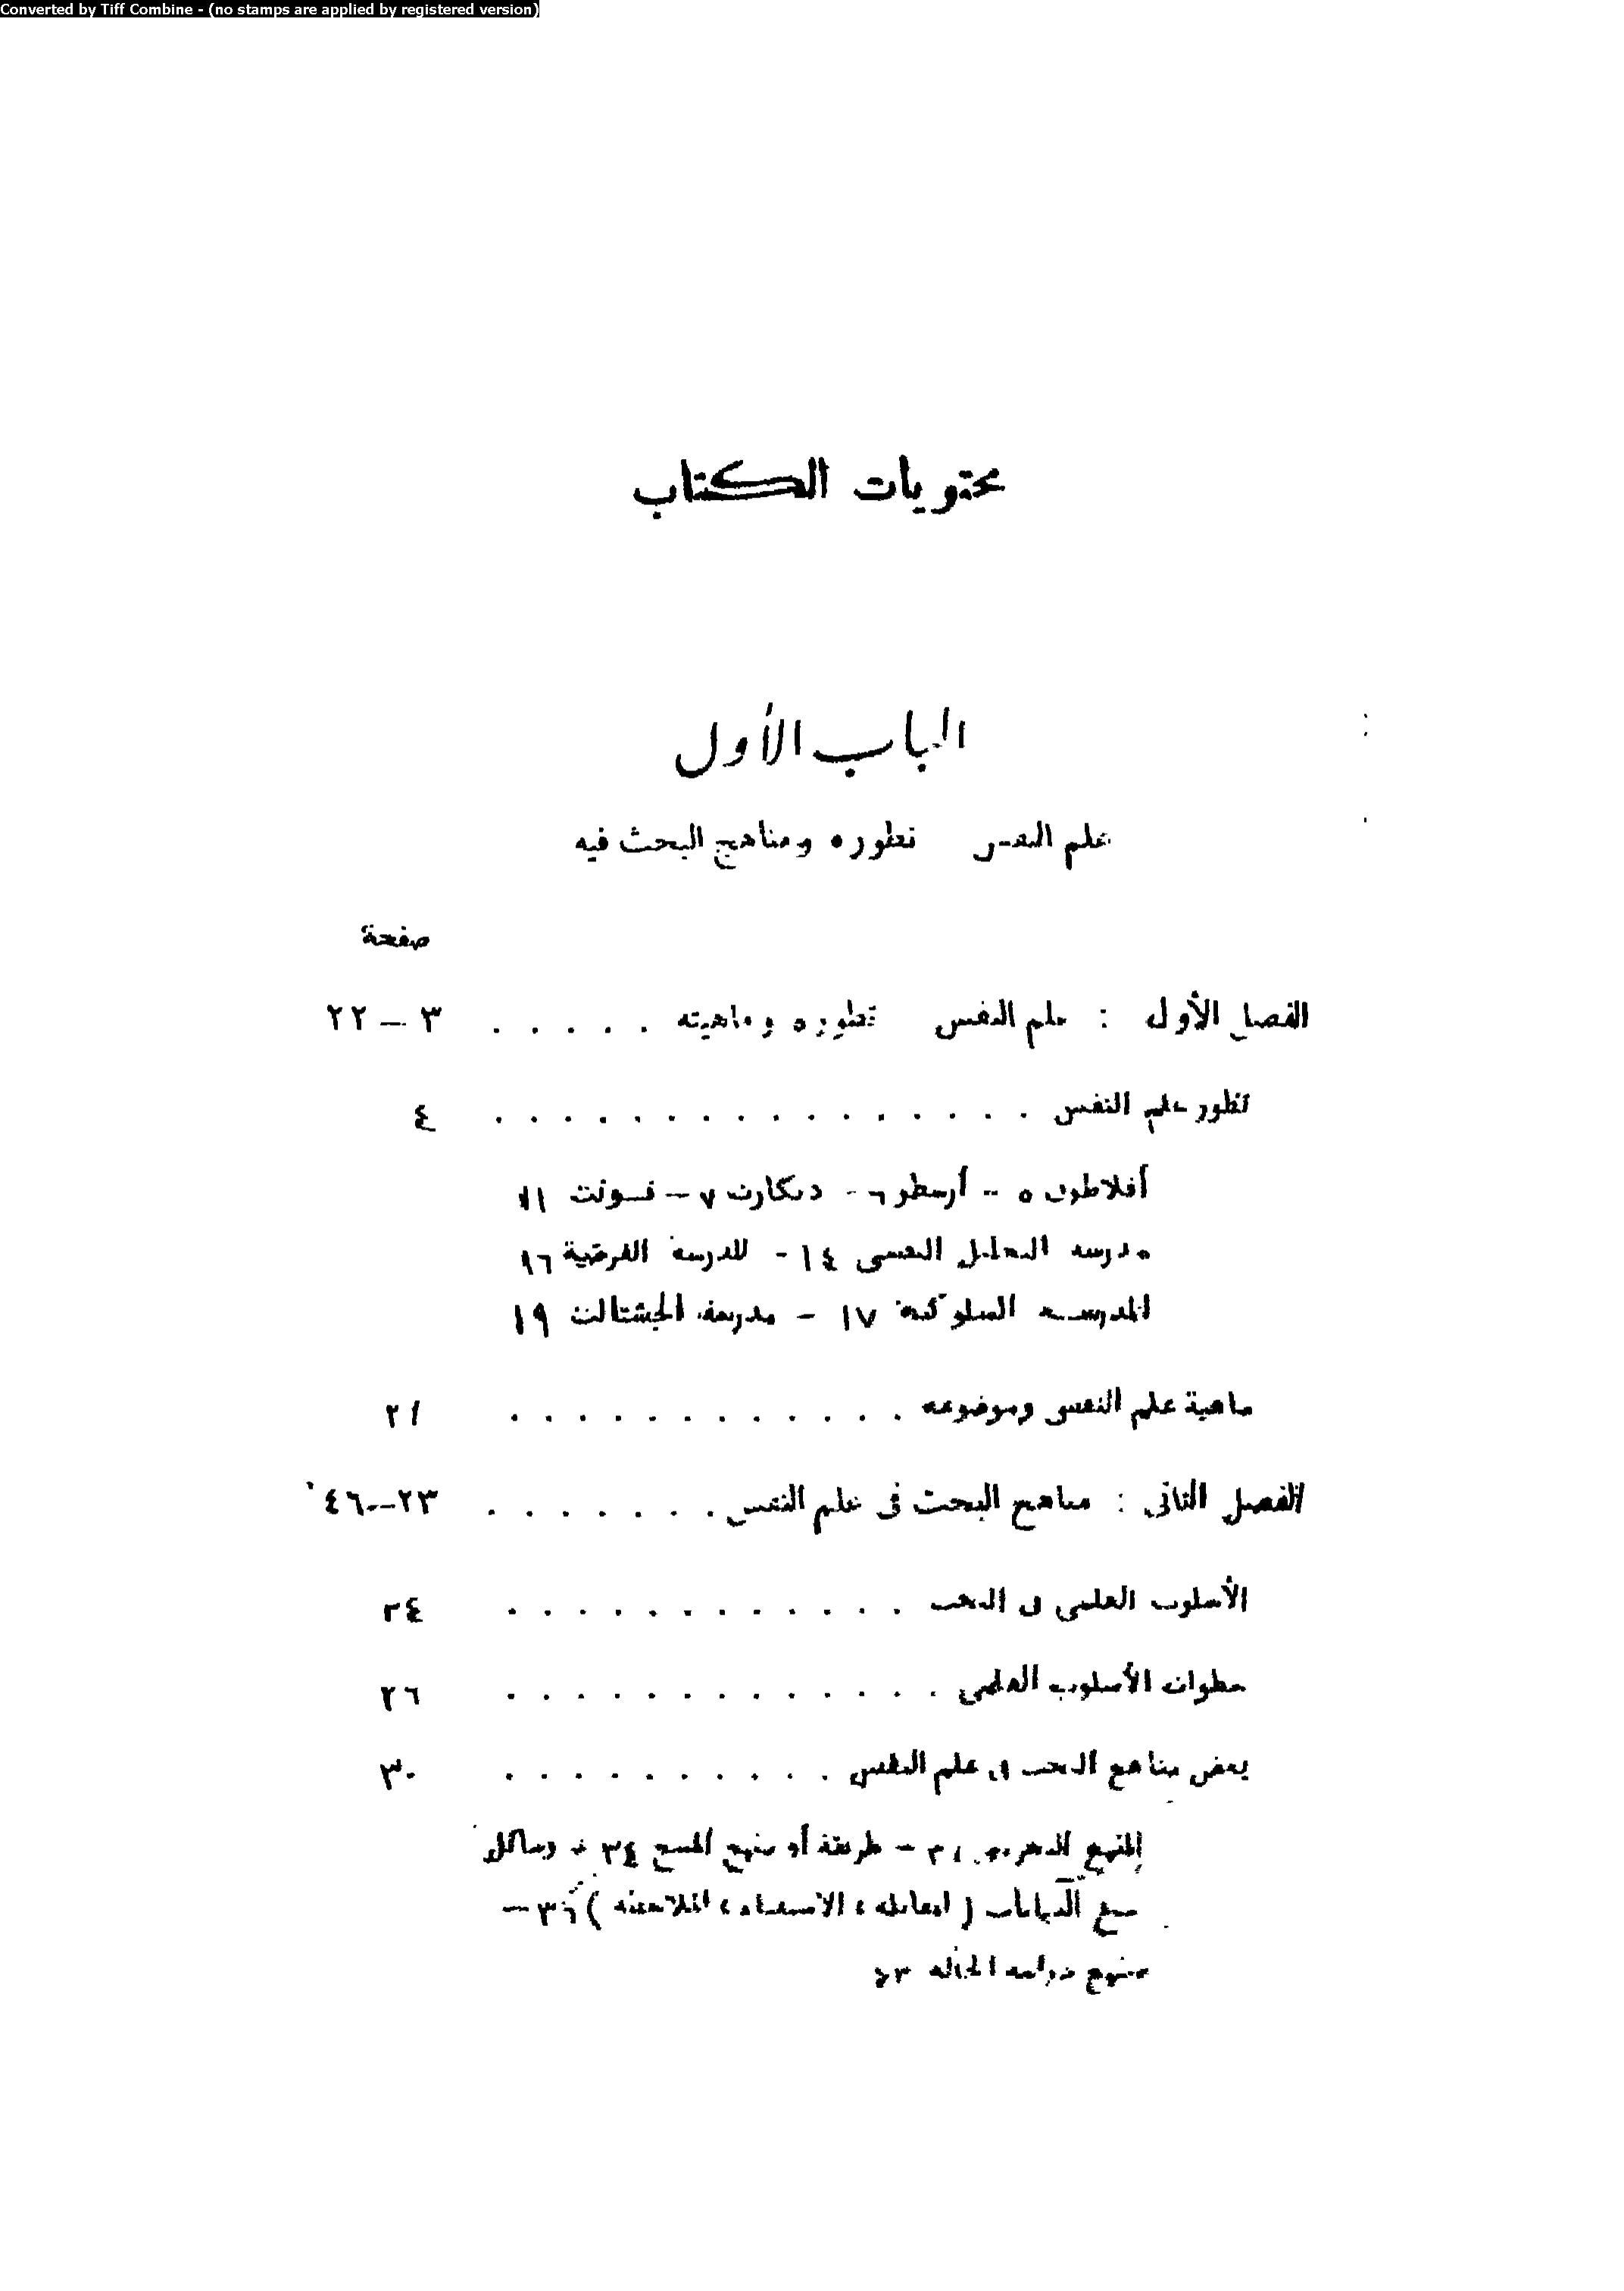 Converted by Tiff Combine - (no stamps are applied by registered version)
محتويات الكتاب
الباب الأول
علم النفس تطوره ومناهج البحث فيه
صفحة
الفصل الأول : علم النفس تطوره وماهيته . . . . . ٣ – ٢٢
تطور علم النفس . . . . . . . . . . . . . . . . ٤
أفلاطون ٥ – أرسطو ٦ – ديكارت ٧ – فونت ١١
مدرسة التحليل النفسى ١٤ – المدرسة الغرضية ١٦
المدرسة السلوكية ١٧ – مدرسة الجشتالت ١٩
ماهية علم النفس وموضوعه . . . . . . . . . . . . ٢١
الفصل الثانى : مناهج البحث فى علم النفس . . . . . . . ٢٣–٤٦
الأسلوب العلمى فى البحث . . . . . . . . . . . . ٢٤
خطوات الأسلوب العلمى . . . . . . . . . . . . . ٢٦
بعض مناهج البحث فى علم النفس . . . . . . . . . . ٣٠
المنهج التجريبى – طريقة أو منهج المسح ٣٤ – وسائل
جمع البيانات ( المقابلة ، الاستفتاء ، الملاحظة ) ٣٦ –
منهج دراسة الحالة